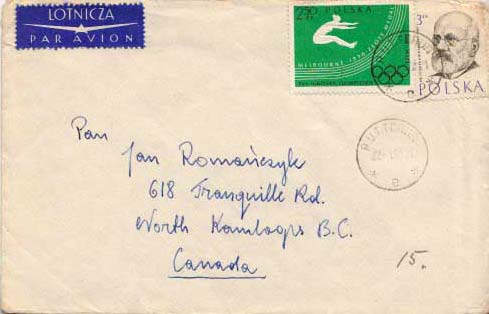 LOTNICZA
PAR AVION
2.50 POLSKA
MELBOURNE 1956 ZŁOTY MEDAL
3
POLSKA
Pan
Jan Romańczyk
618 Tranquille Rd.
North Kamloops B.C.
Canada
15.